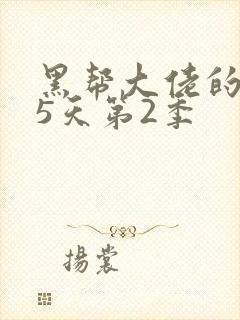 黑帮大佬的
5天第2季
揚裳